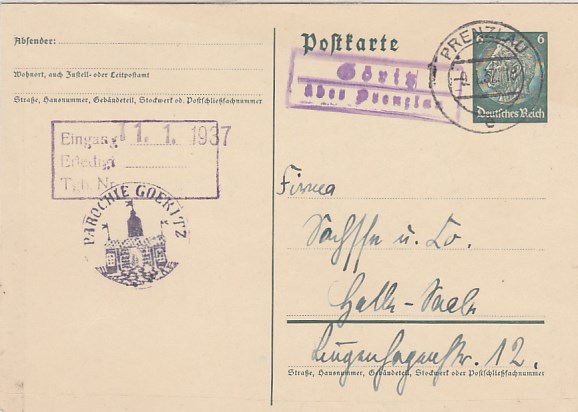 Absender:
Wohnort, auch Zustell- oder Leitpostamt
Straße, Hausnummer, Gebäudeteil, Stockwerk od. Postschließfachnummer
Eingang 11. 1. 1937
Erledigt
Tgb. Nr.
PAROCHIE GOERITZ
Postkarte
Göritz
über Prenzlau
PRENZLAU
c
6
Deutsches Reich
Firma
Sachsse u. Co.
Halle-Saale
Straße, Hausnummer, Gebäudeteil, Stockwerk oder Postschließfachnummer
12.